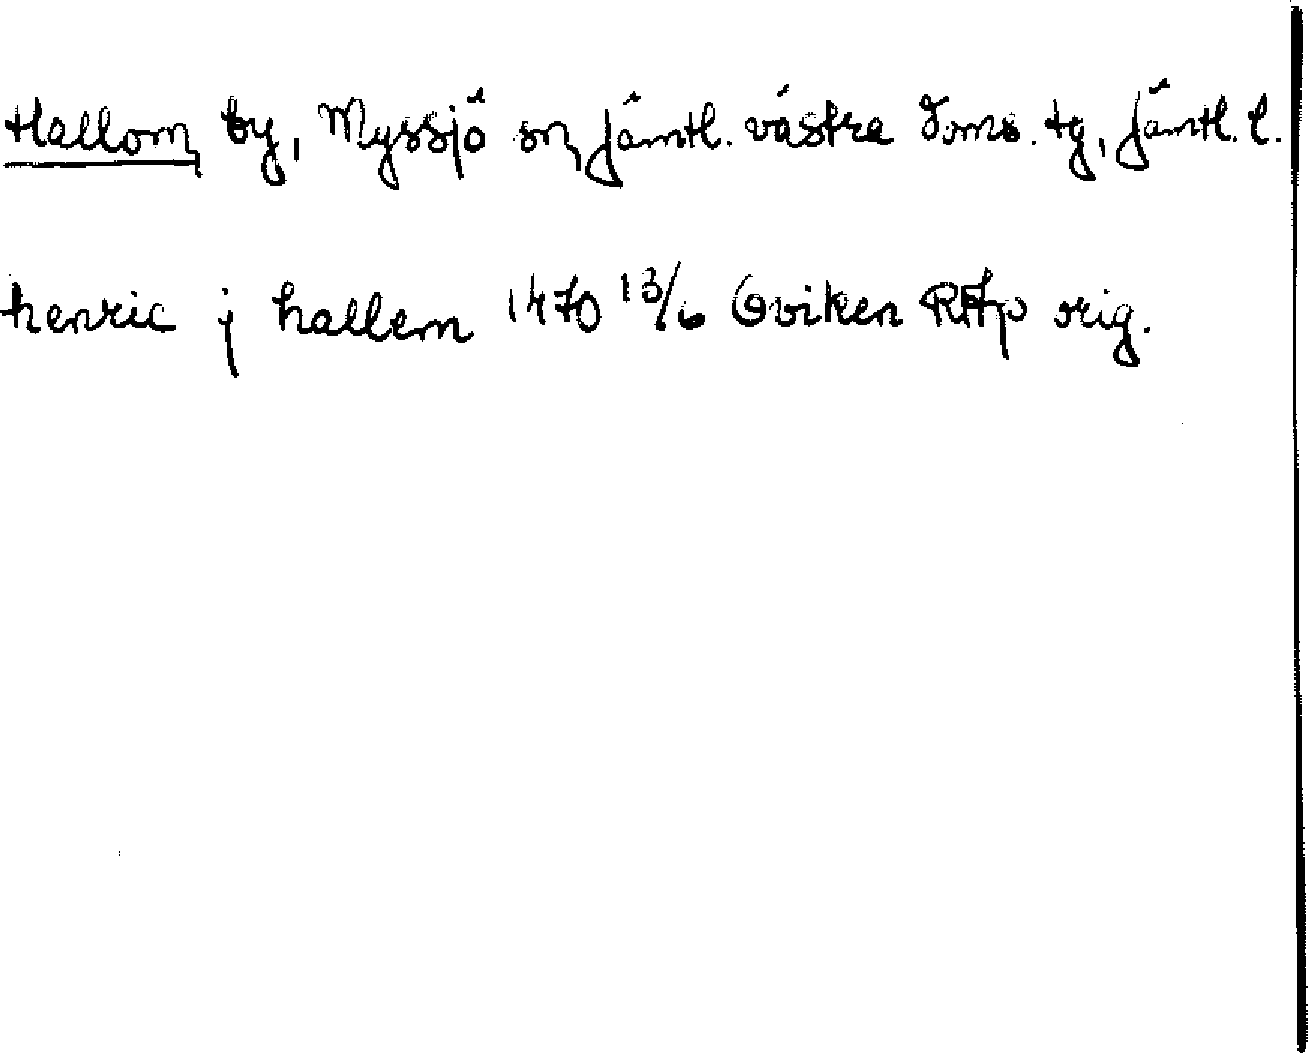 Hallom, by, Myssjö sn, Jämtl. västra doms. tg, Jämtl. l.
henric j hallem 1470 13/6 Oviken RAp orig.